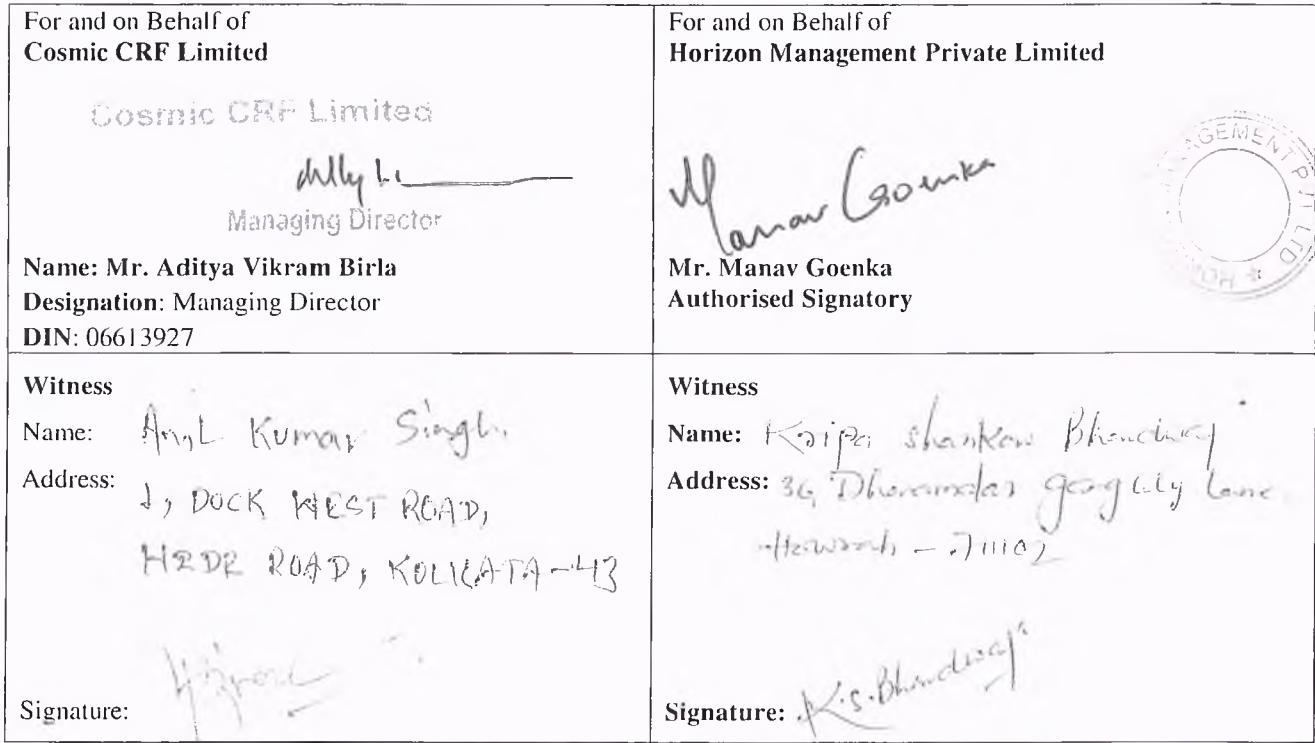 For and on Behalf of
Cosmic CRF Limited
Cosmic CRF Limited
Managing Director
Name: Mr. Aditya Vikram Birla
Designation: Managing Director
DIN: 06613927
For and on Behalf of
Horizon Management Private Limited
Manav Goenka
AGEMENT PVT LTD * HO
Mr. Manav Goenka
Authorised Signatory
Witness
Name: Anil Kumar Singh
Address:
1, DOCK WEST ROAD,
ROAD, KOLKATA-43
Signature:
Witness
Name: Kripa Shankar Bhardwaj
Address: 36 Lane
Howrah - 711102
Signature: K.S. Bhardwaj